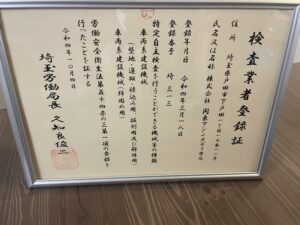 検査業者登録証
住所 埼玉県戸田市下戸田
氏名又は名称 株式会社 関東マシンメディカル
登録番号 埼三一三
登録年月日 令和四年三月一八日
特定自主検査を行うことができる機械等の種類
車両系建設機械
(整地・運搬・積込み用、掘削用及び解体用)
車両系建設機械(締固め用)
労働安全衛生法第五十四条の三第一項の登録を
行ったことを証する
令和四年一〇月四日
埼玉労働局長 久知良俊二